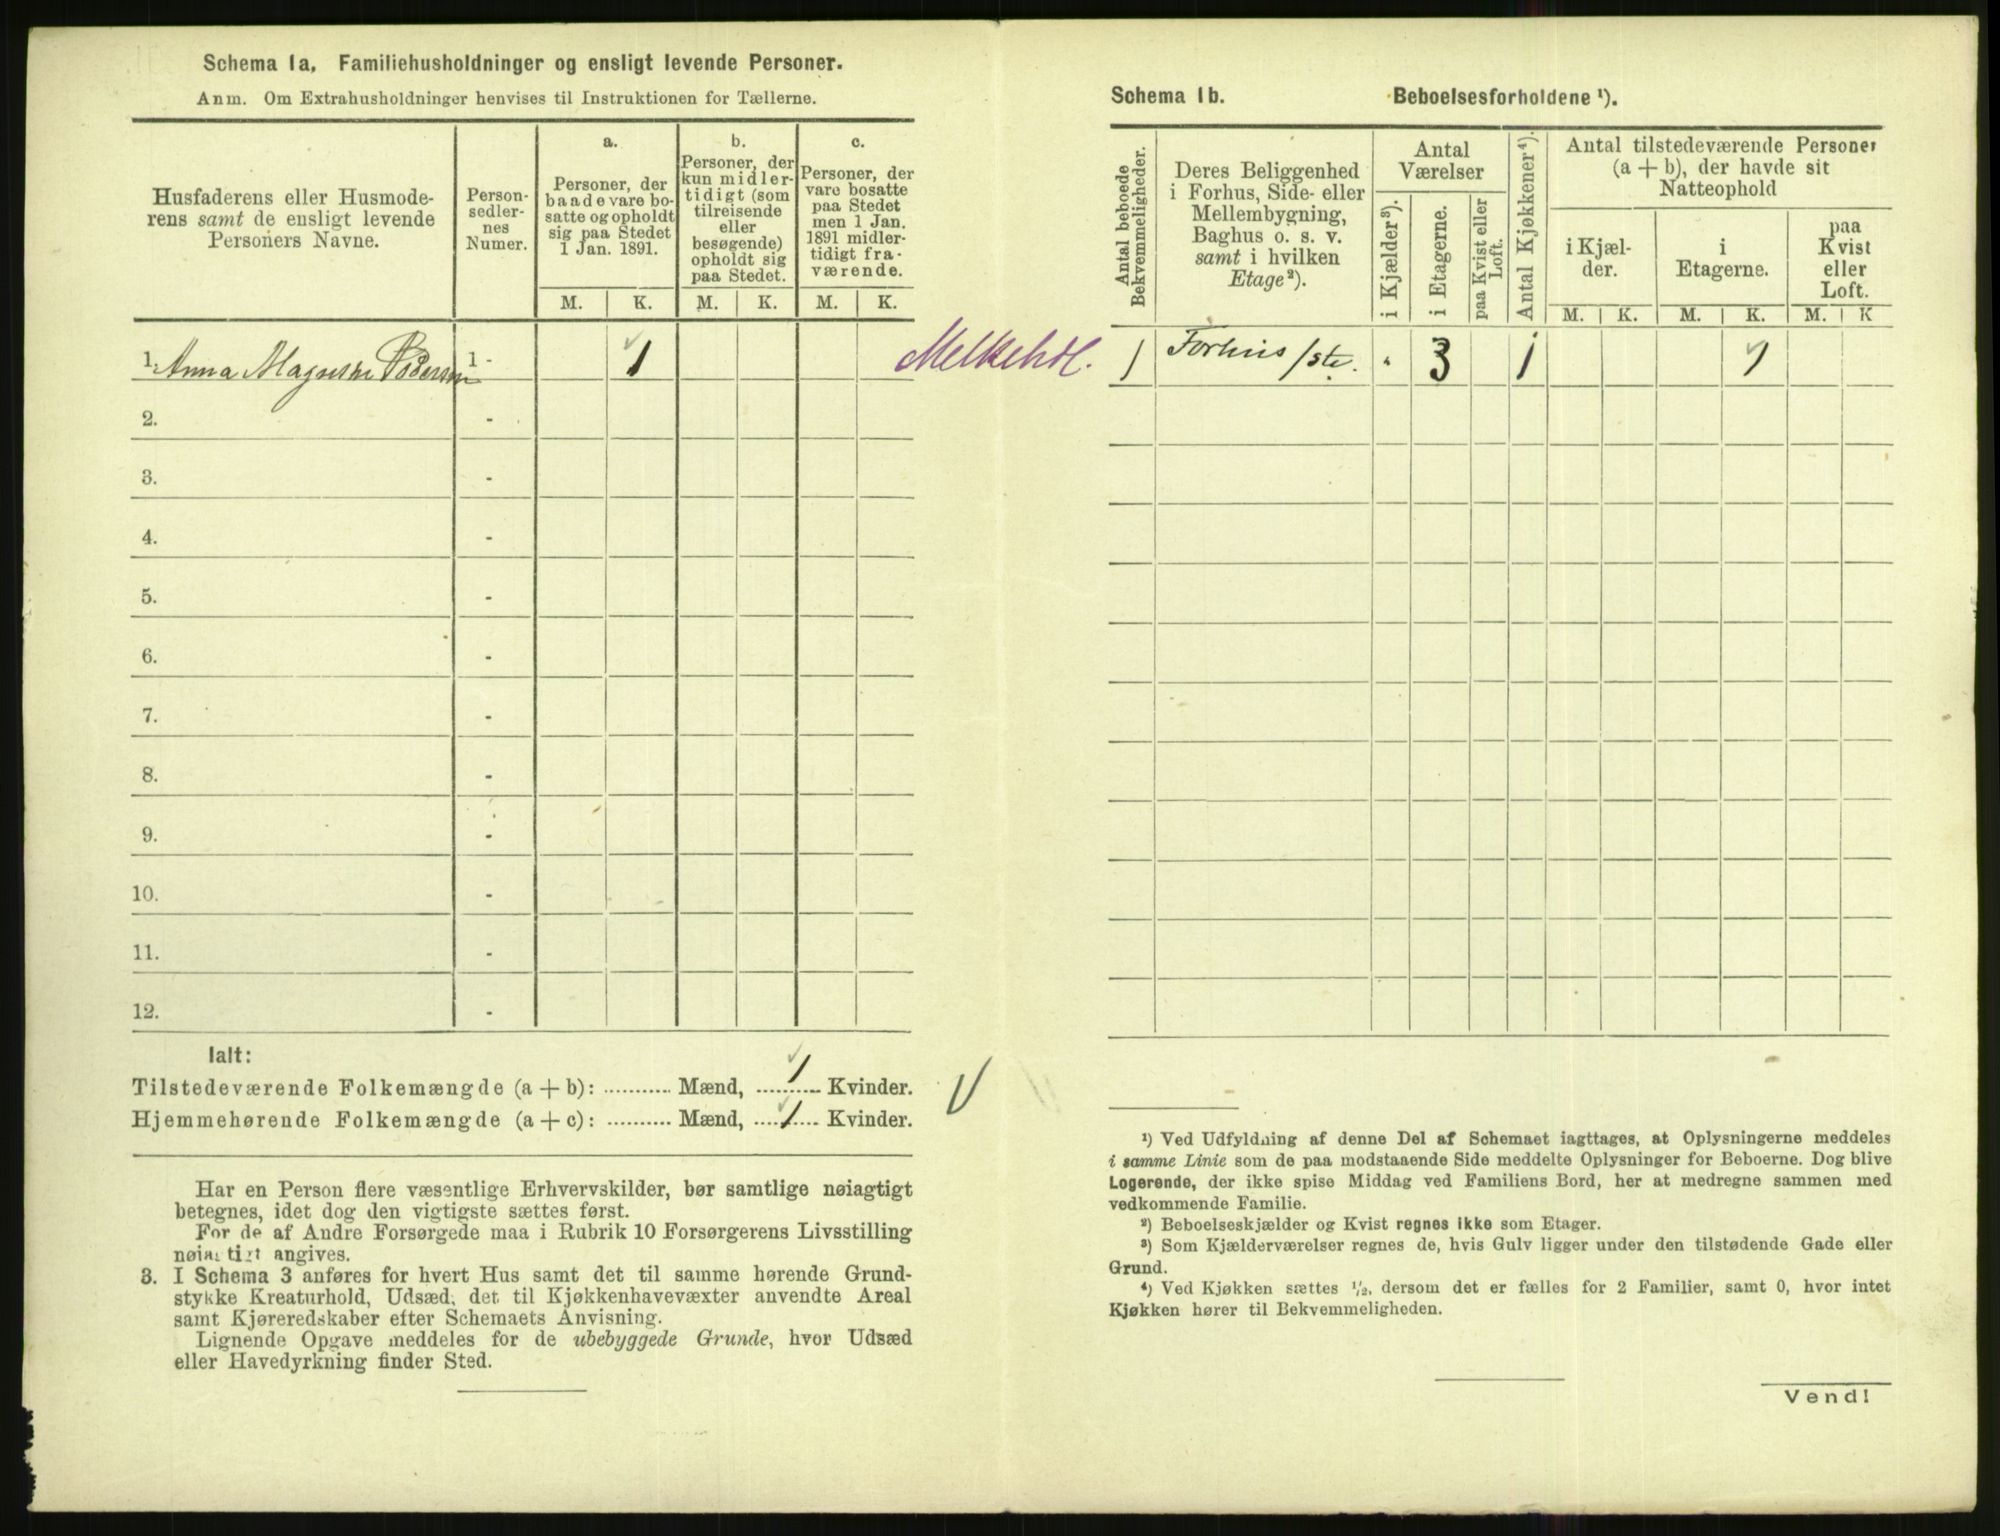 Schema 1a. Familiehusholdninger og ensligt levende Personer.
Anm. Om Extrahusholdninger henvises til Instruktionen for Tællerne.
Husfaderens eller Husmode-
rens samt de ensligt levende
Personers Navne.
Person-
sedler-
nes
Numer.
a.
Personer, der
baade vare bo-
satte og opholdt
sig paa Stedet
1 Jan. 1891.
b.
Personer, der
kun midler-
tidigt (som
tilreisende
eller
besøgende)
opholdt sig
paa Stedet.
c.
Personer, der
vare bosatte
paa Stedet
men 1 Jan.
1891 midler-
tidigt fra-
værende.
M. K. M. K. M. K.
1. Anna Pedersen 1 - 1
Melkehdl.
2. -
3. -
4. -
5. -
6. -
7. -
8. -
9. -
10. -
11. -
12. -
Ialt:
Tilstedeværende Folkemængde (a + b): .......... Mænd, 1 Kvinder.
Hjemmehørende Folkemængde (a + c): .......... Mænd, 1 Kvinder.
Har en Person flere væsentlige Erhvervskilder, bør samtlige nøiagtigt
betegnes, idet dog den vigtigste sættes først.
For de af Andre Forsørgede maa i Rubrik 10 Forsørgerens Livsstilling
nøiagtigt angives.
3. I Schema 3 anføres for hvert Hus samt det til samme hørende Grund-
stykke Kreaturhold, Udsæd, det til Kjøkkenhavevæxter anvendte Areal
samt Kjøreredskaber efter Schemaets Anvisning.
Lignende Opgave meddeles for de ubebyggede Grunde, hvor Udsæd
eller Havedyrkning finder Sted.
Schema 1b. Beboelsesforholdene ¹).
Antal beboede
Bekvemmeligheder.
Deres Beliggenhed
i Forhus, Side- eller
Mellembygning,
Baghus o. s. v.
samt i hvilken
Etage ²).
Antal
Værelser
i Kjælder ³).
i Etagerne.
paa Kvist eller
Loft.
Antal Kjøkkener ⁴).
Antal tilstedeværende Personer
(a + b), der havde sit
Natteophold
i Kjæl-
der.
i
Etagerne.
paa
Kvist
eller
Loft.
M. K. M. K. M. K
1 Forhus 1ste. " 3 1 1
¹) Ved Udfyldning af denne Del af Schemaet iagttages, at Oplysningerne meddeles
i samme Linie som de paa modstaaende Side meddelte Oplysninger for Beboerne. Dog blive
Logerende, der ikke spise Middag ved Familiens Bord, her at medregne sammen med
vedkommende Familie.
²) Beboelseskjælder og Kvist regnes ikke som Etager.
³) Som Kjælderværelser regnes de, hvis Gulv ligger under den tilstødende Gade eller
Grund.
⁴) Ved Kjøkken sættes ½, dersom det er fælles for 2 Familier, samt 0, hvor intet
Kjøkken hører til Bekvemmeligheden.
Vend!